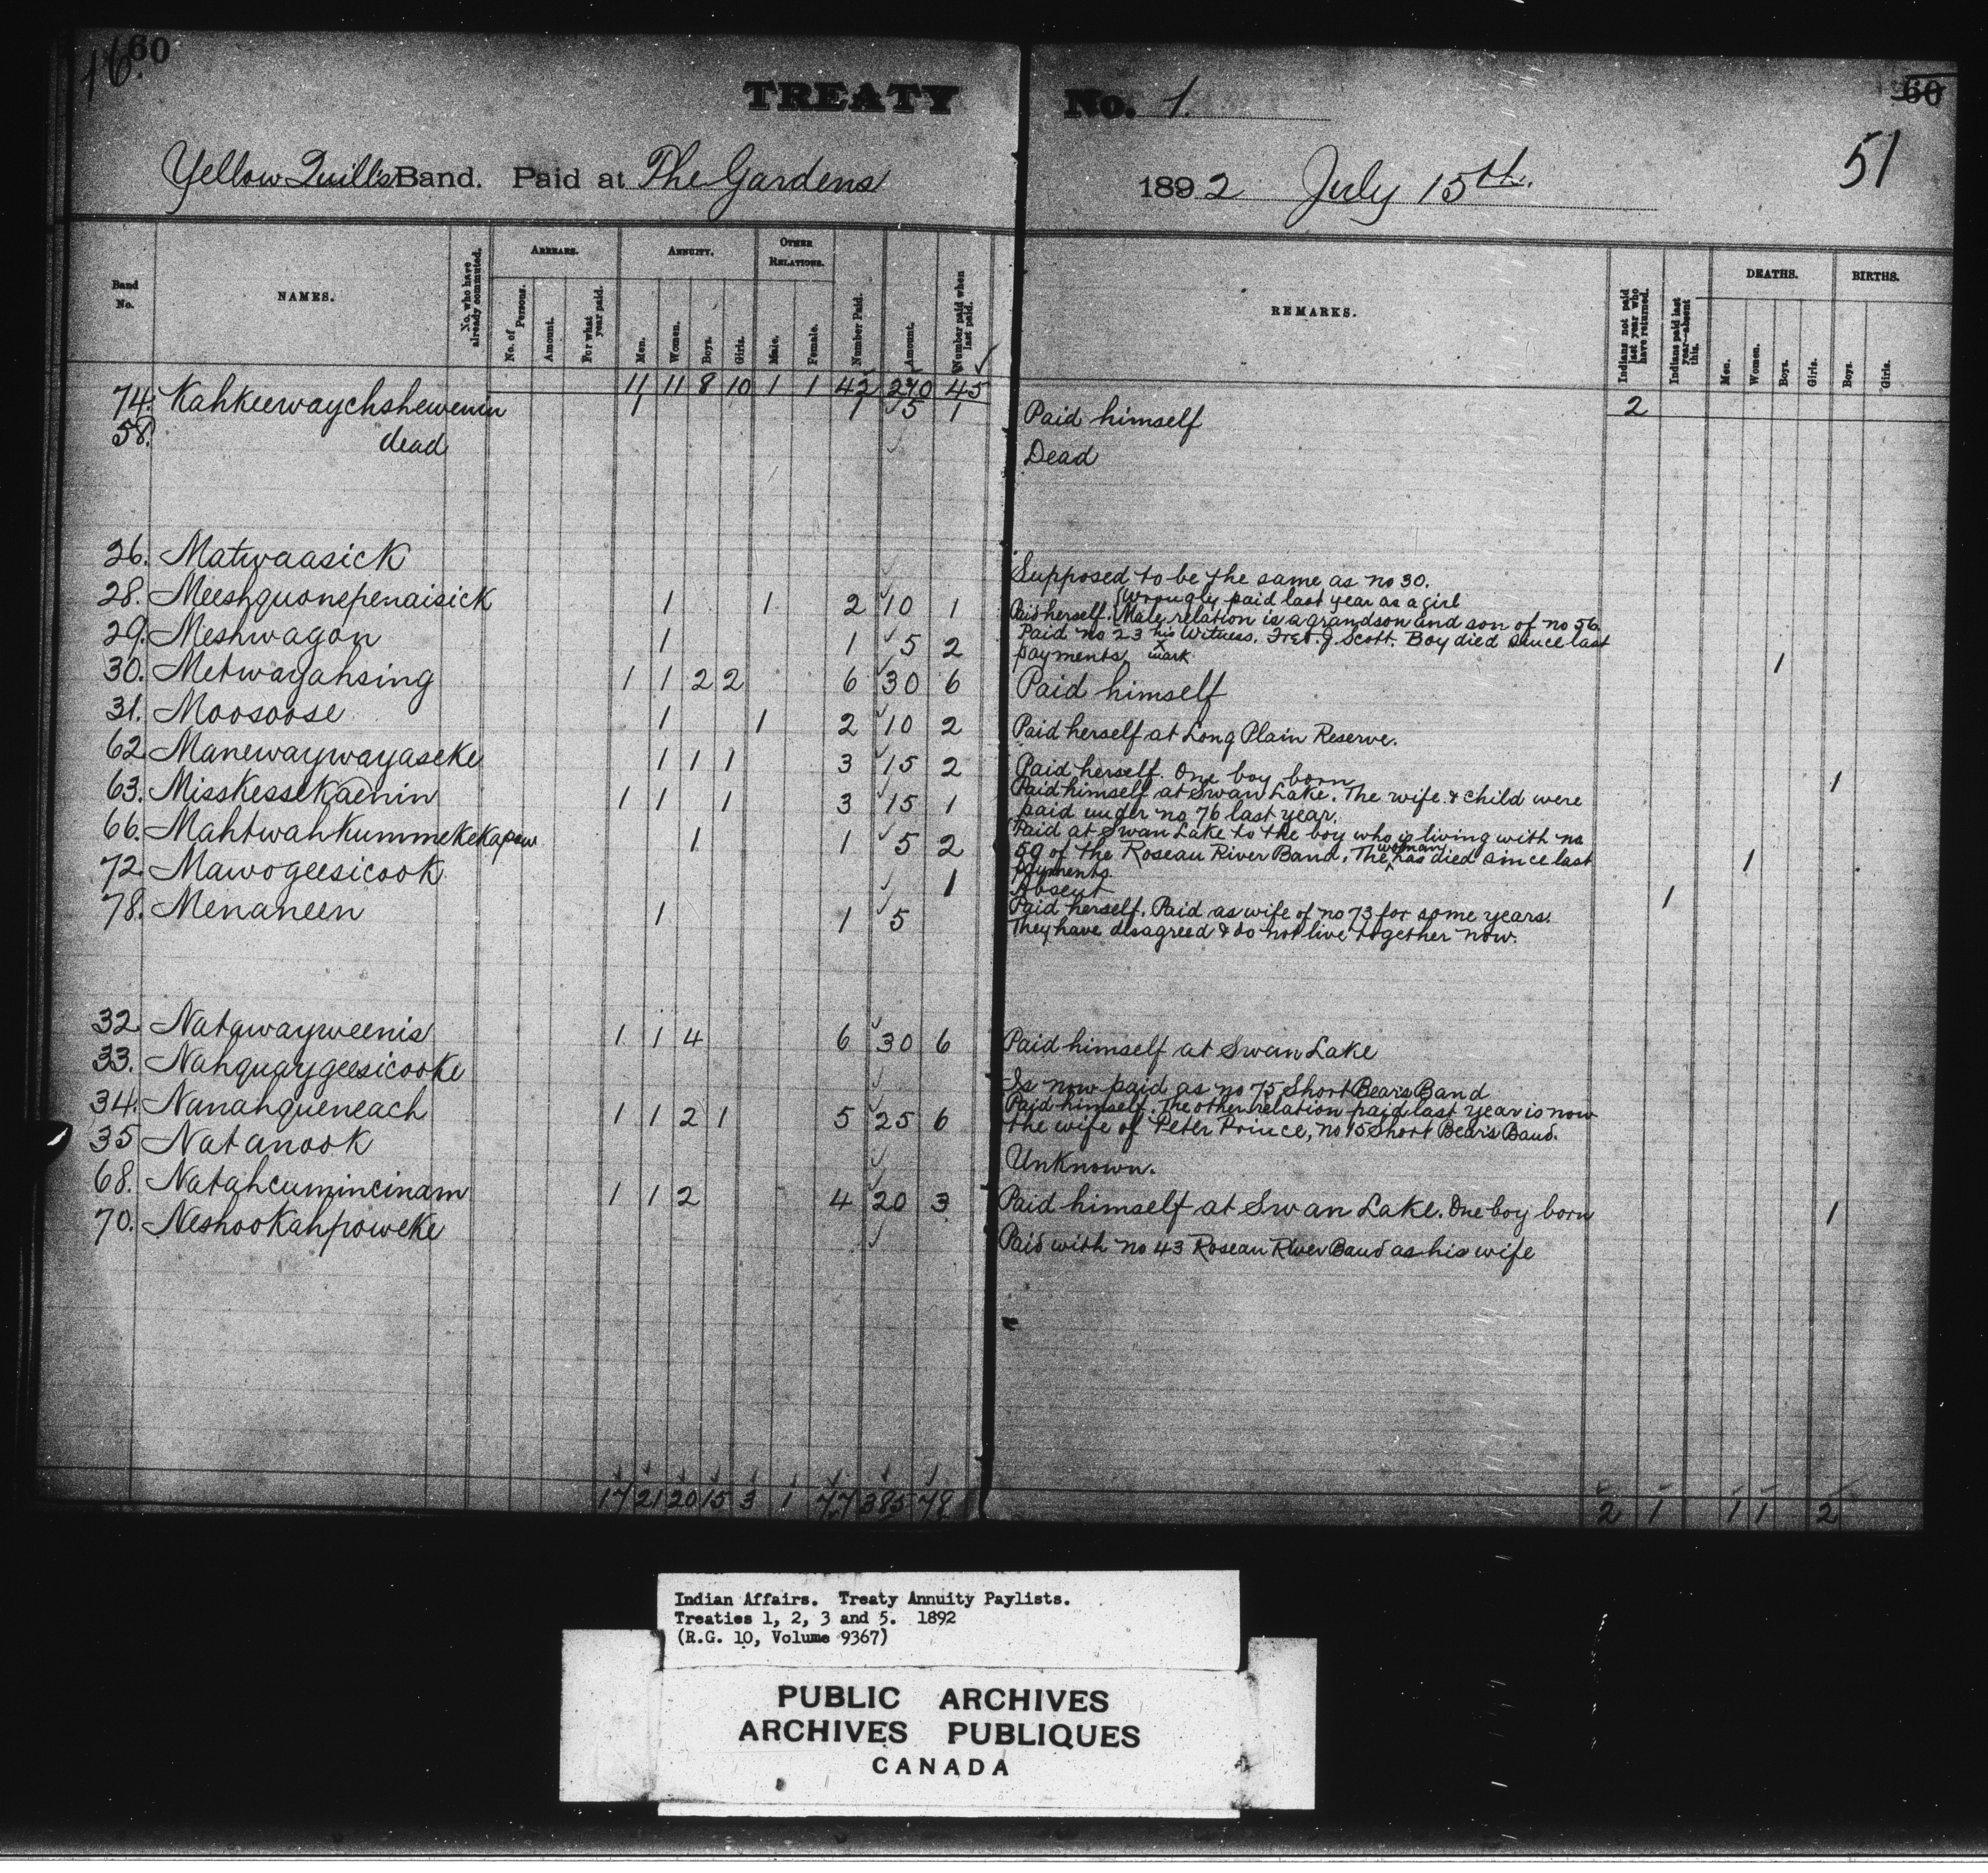 16 60
TREATY No. 1. 60
51
Yellow Quill's Band. Paid at The Gardens 1892 July 15th.
Band No. NAMES. No. who have already commuted. ARREARS. No. of Persons. Amount. For what year paid. ANNUITY. Men. Women. Boys. Girls. OTHER RELATIONS. Male. Female. Number Paid. Amount. Number paid when last paid. REMARKS. Indians not paid last year who have returned. Indians paid last year—absent this. DEATHS. Men. Women. Boys. Girls. BIRTHS. Boys. Girls.
11 11 8 10 1 1 42 210 45 2
74. Kahkeewaychshewenin 1 1 5 1 Paid himself
58. dead Dead
26. Matwaasick Supposed to be the same as no 30.
28. Meeshquonepenaisick 1 1 2 10 1 Paid herself. (Wrongly paid last year as a girl
Male relation is a grandson and son of no 56.
29. Meshwagon 1 1 5 2 Paid no 23 his x mark Witness, Fred. J. Scott. Boy died since last
payments 1
30. Metwayahsing 1 1 2 2 6 30 6 Paid himself
31. Moosoose 1 1 2 10 2 Paid herself at Long Plain Reserve.
62 Manewaywayaseke 1 1 1 3 15 2 Paid herself. One boy born 1
63. Misskessekaenin 1 1 1 3 15 1 Paid himself at Swan Lake. The wife & child were
paid under no 76 last year.
66. Mahtwahkummekekapow 1 1 5 2 Paid at Swan Lake to the boy who is living with no
59 of the Roseau River Band. The woman has died since last 1
payments
72 Mawogeesicook 1 Absent 1
78. Menaneen 1 1 5 Paid herself. Paid as wife of no 73 for some years.
They have disagreed & do not live together now.
32 Natawayweenis 1 1 4 6 30 6 Paid himself at Swan Lake
33. Nahquaygeesicooke Is now paid as no 75 Short Bear's Band
34. Nanahqueneach 1 1 2 1 5 25 6 Paid himself. The other relation paid last year is now
the wife of Peter Prince, no 15 Short Bear's Band.
35 Natanook Unknown.
68. Natahcumincinam 1 1 2 4 20 3 Paid himself at Swan Lake. One boy born 1
70. Neshookahpoweke Paid with no 43 Roseau River Band as his wife
17 21 20 15 3 1 77 385 78 2 1 1 1 2
Indian Affairs. Treaty Annuity Paylists.
Treaties 1, 2, 3 and 5. 1892
(R.G. 10, Volume 9367)
PUBLIC ARCHIVES
ARCHIVES PUBLIQUES
CANADA